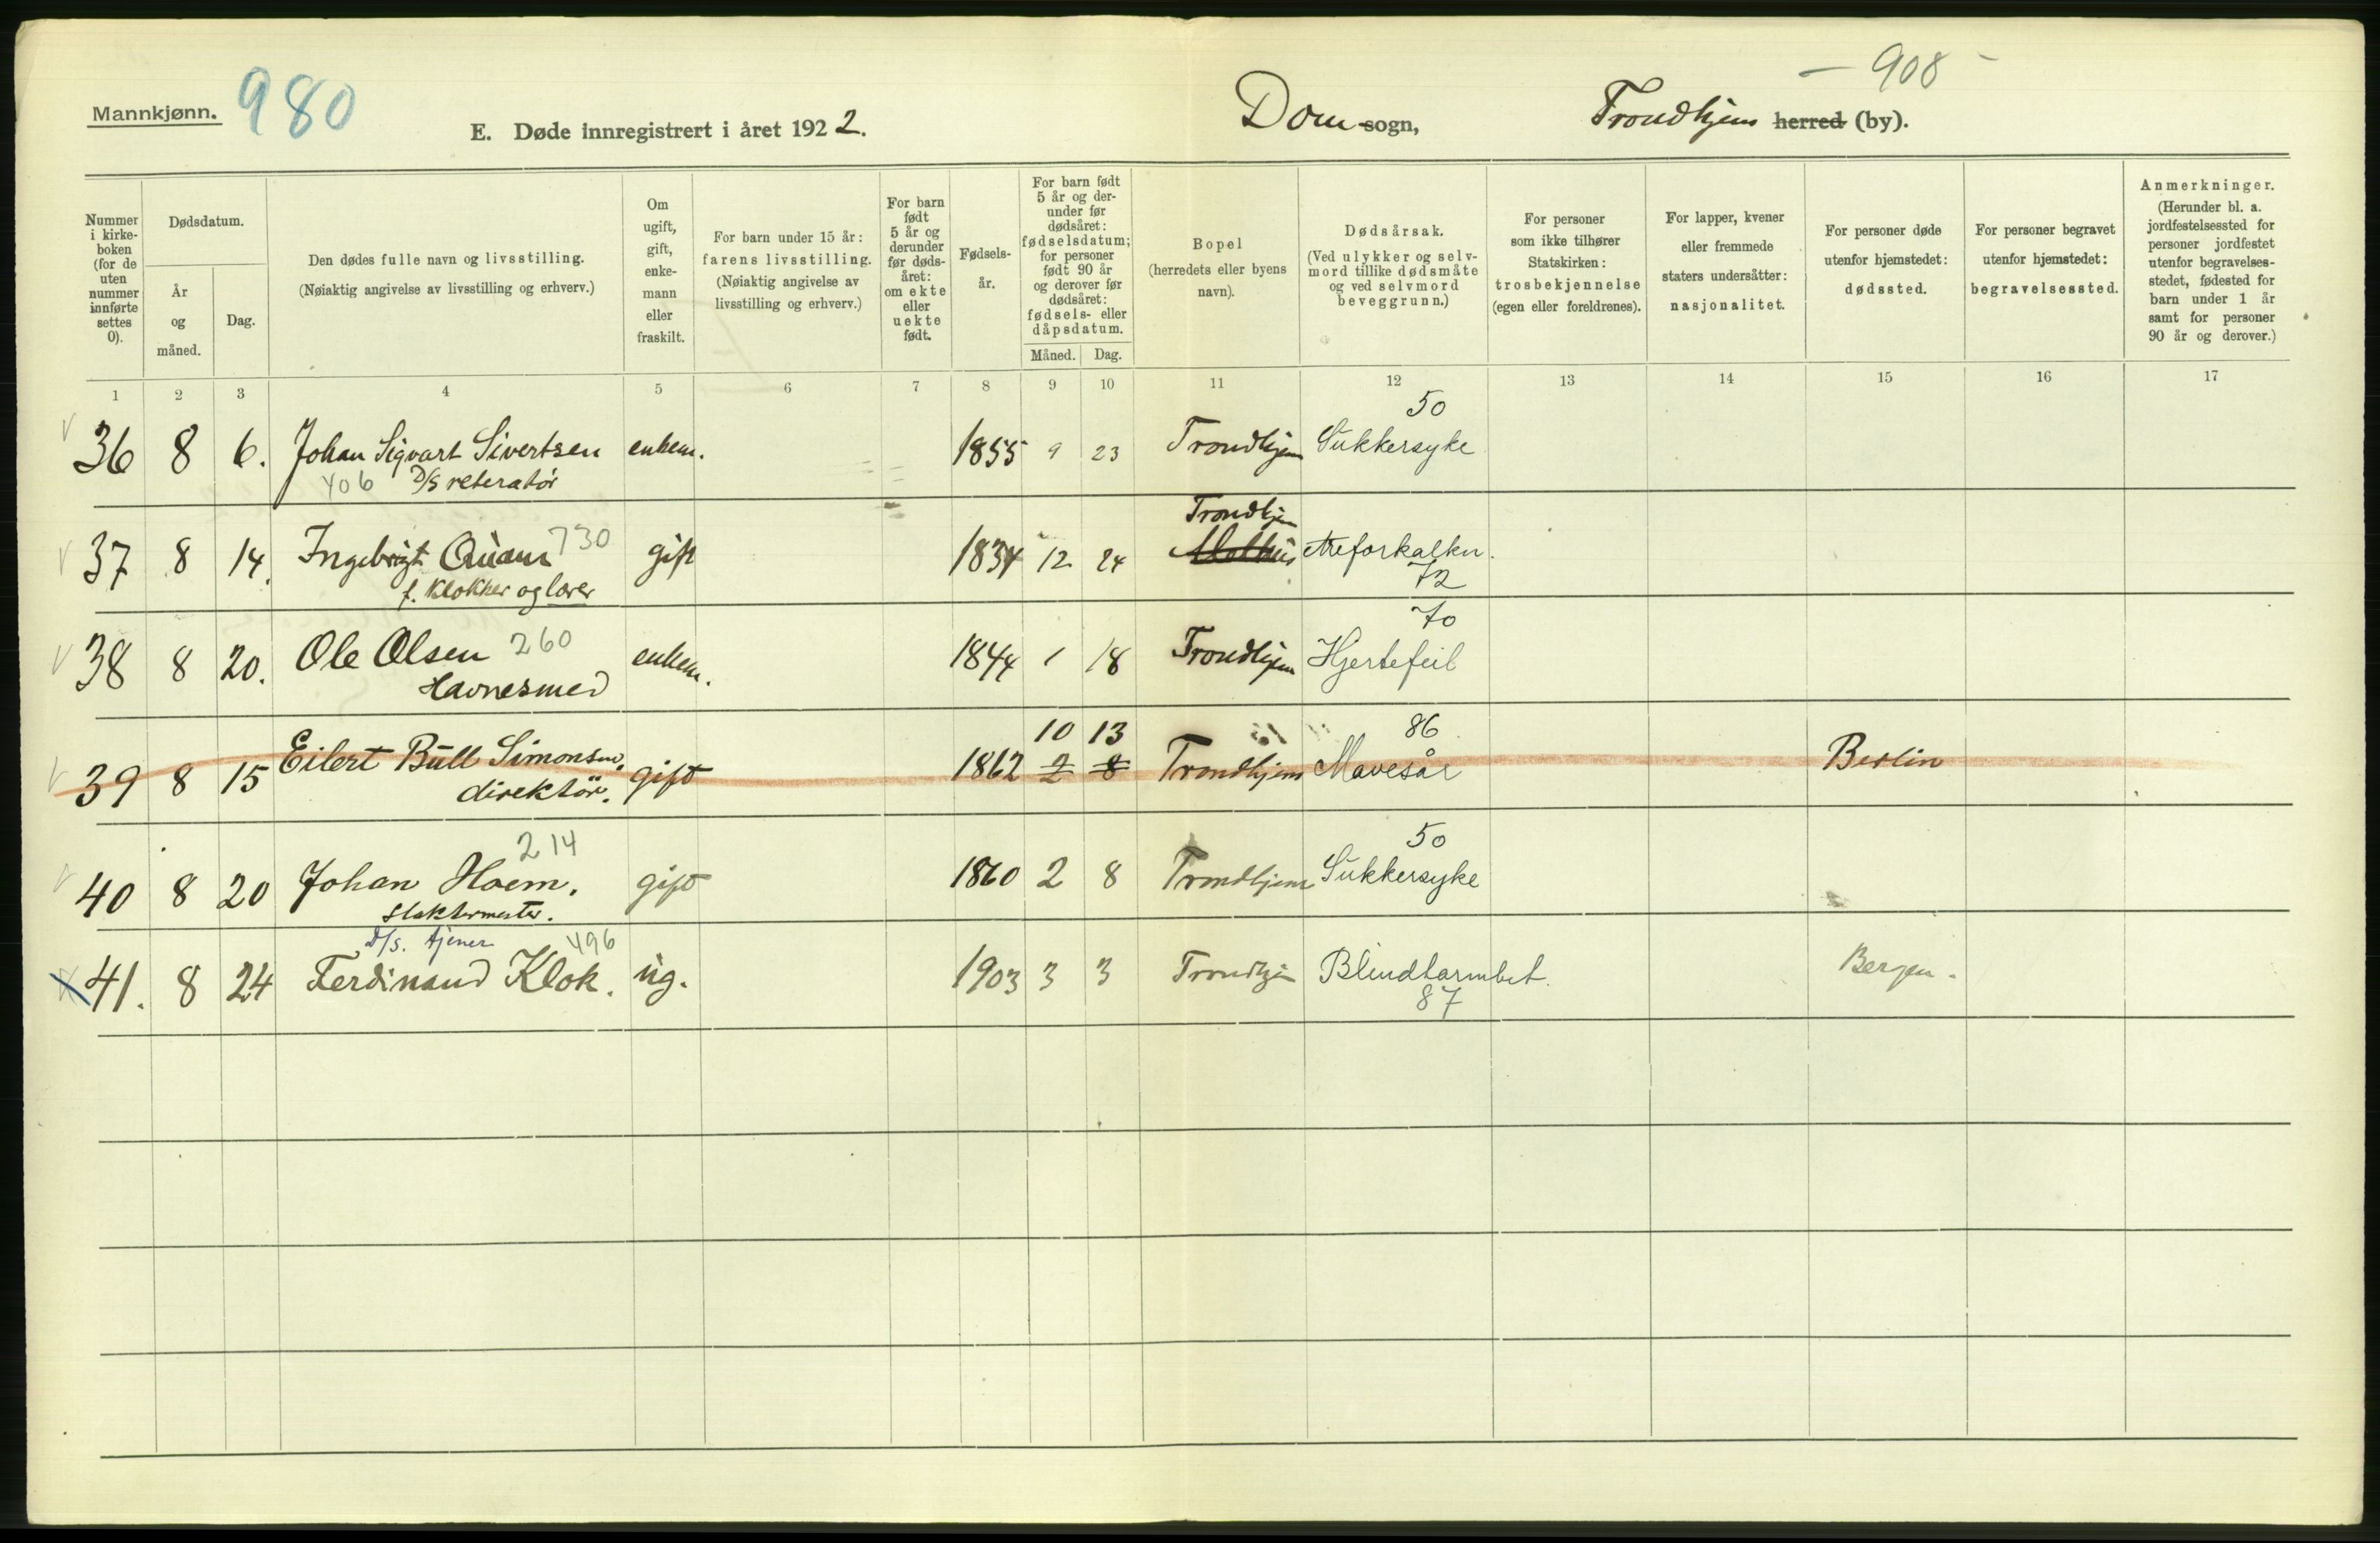 Mannkjønn.
980
E. Døde innregistrert i året 1922.
Dom sogn,
Trondhjem herred (by).
- 908 -
Nummer i kirkeboken (for de uten nummer innførte settes 0).
Dødsdatum.
År og måned.
Dag.
Den dødes fulle navn og livsstilling.
(Nøiaktig angivelse av livsstilling og erhverv.)
Om ugift, gift, enkemann eller fraskilt.
For barn under 15 år: farens livsstilling.
(Nøiaktig angivelse av livsstilling og erhverv.)
For barn født 5 år og derunder før dødsåret: om ekte eller uekte født.
Fødselsår.
For barn født 5 år og derunder før dødsåret: fødselsdatum; for personer født 90 år og derover før dødsåret: fødsels- eller dåpsdatum.
Måned. Dag.
Bopel
(herredets eller byens navn).
Dødsårsak.
(Ved ulykker og selvmord tillike dødsmåte og ved selvmord beveggrunn.)
For personer som ikke tilhører Statskirken: trosbekjennelse (egen eller foreldrenes).
For lapper, kvener eller fremmede staters undersåtter: nasjonalitet.
For personer døde utenfor hjemstedet: dødssted.
For personer begravet utenfor hjemstedet: begravelsessted.
Anmerkninger.
(Herunder bl. a. jordfestelsessted for personer jordfestet utenfor begravelsesstedet, fødested for barn under 1 år samt for personer 90 år og derover.)
1 2 3 4 5 6 7 8 9 10 11 12 13 14 15 16 17
50
36 8 6. Johan Sigvart Sivertsen enkem. 1855 9 23 Trondhjem Sukkersyke
406 D/S reteratør
Trondhjem
37 8 14. Ingebrigt Quam 730 gift 1834 12 24 Melhus Areforkalkn.
f. Klokker og lærer 72
70
38 8 20. Ole Olsen 260 enkem. 1844 1 18 Trondhjem Hjertefeil
Havnesmed
10 13 86
39 8 15 Eilert Bull Simonsen. gift 1862 2 8 Trondhjem Mavesår Berlin
direktør.
214 50
40 8 20 Johan Hoem. gift 1860 2 8 Trondhjem Sukkersyke
slaktermester.
D/S. tjener 496
41. 8 24 Ferdinand Klok. ug. 1903 3 3 Trondhjem Blindtarmbet. Bergen.
87